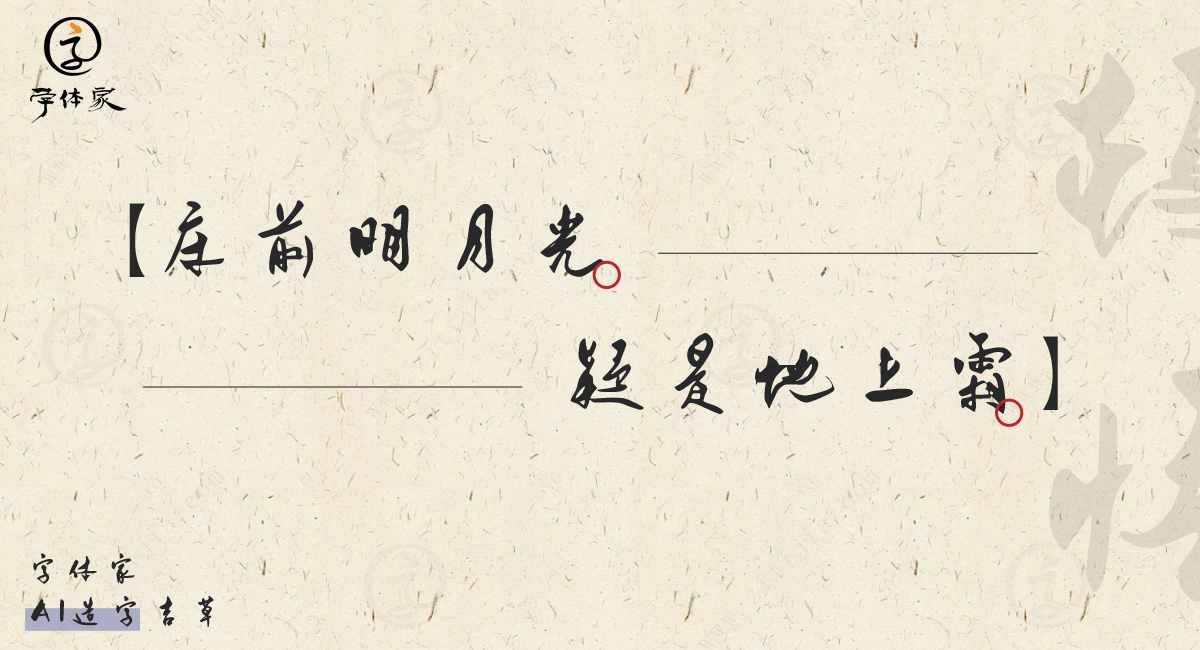 字
字体家
【床前明月光。
疑是地上霜。】
字体家
AI造字吉草